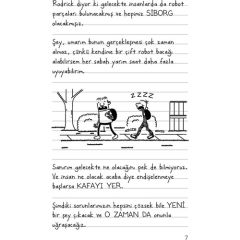 Rodrick diyor ki gelecekte insanlarda da robot
parçaları bulunacakmış ve hepimiz SİBORG
olacakmışız.
Şey, umarım bunun gerçekleşmesi çok zaman
almaz, çünkü kendime bir çift robot bacağı
alabilirsem her sabah yarım saat daha fazla
uyuyabilirim.
ZZZZ
Sanırım gelecekte ne olacağını pek de bilmiyoruz.
Ve insan ne olacak acaba diye endişelenmeye
başlarsa KAFAYI YER.
Şimdiki sorunlarımızın hepsini çözsek bile YENİ
bir şey çıkacak ve O ZAMAN DA onunla
uğraşacağız.
7